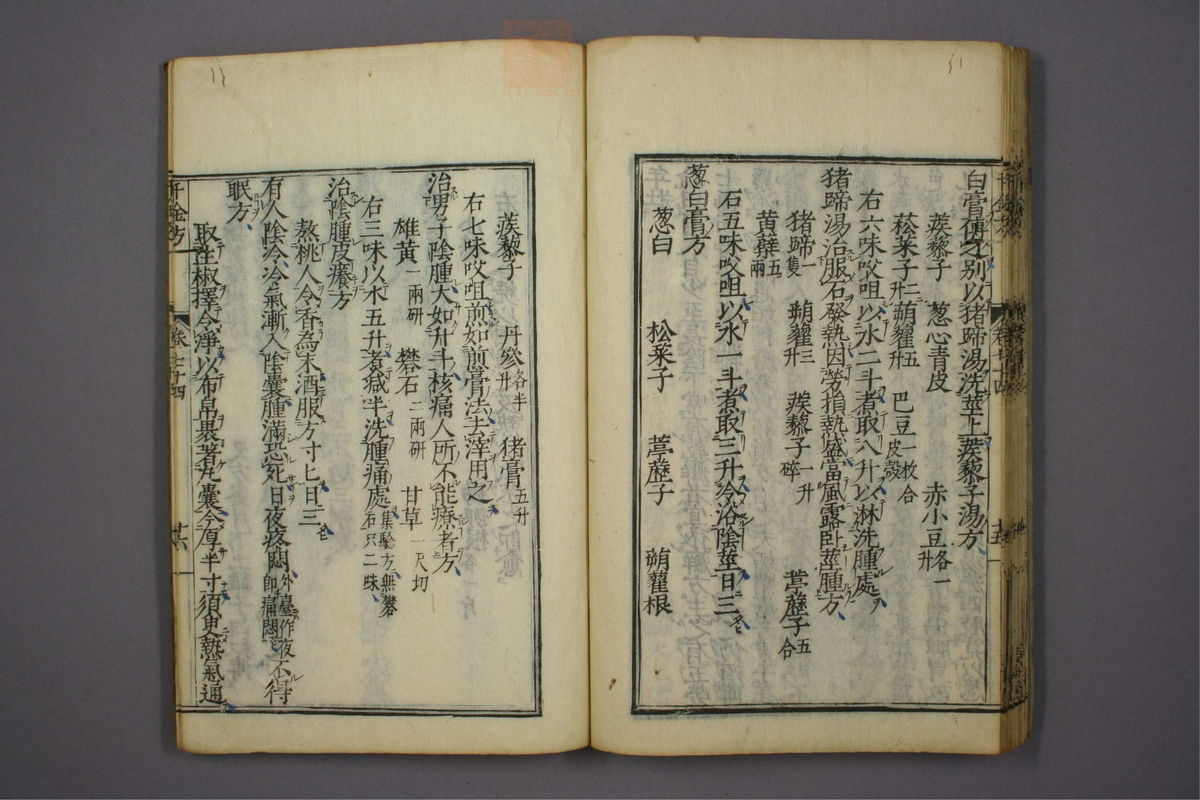 白膏傅之別以猪蹄湯洗莖上蒺藜子湯方
蒺藜子 葱心青皮 赤小豆各一升
菘菜子二升 蒴藋五升 巴豆一枚合皮殼
右六味㕮咀以水二斗煮取八升以淋洗腫處
猪蹄湯治服石發熱因勞損熱盛當風露臥莖腫方
猪蹄一隻 蒴藋三升 蒺藜子一升碎 葶藶子五合
黃蘗五兩
右五味㕮咀以水一斗煮取三升冷浴陰莖日三
葱白膏方
葱白 菘菜子 葶藶子 蒴藋根
蒺藜子 丹參各半升 猪膏五升
右七味㕮咀煎如前膏法去滓用之
治男子陰腫大如升斗核痛人所不能療者方
雄黃一兩研 礬石二兩研 甘草一尺切
右三味以水五升煮減半洗腫痛處集驗方無礬石只二味
治陰腫皮癢方
熬桃人令香為末酒服方寸匕日三
有人陰冷冷氣漸入陰囊腫滿恐死日夜疼悶外臺作夜即痛悶不得
眠方
取生椒擇令淨以布帛裹著丸囊令厚半寸須臾熱氣通
千金方 卷七十四 廿六